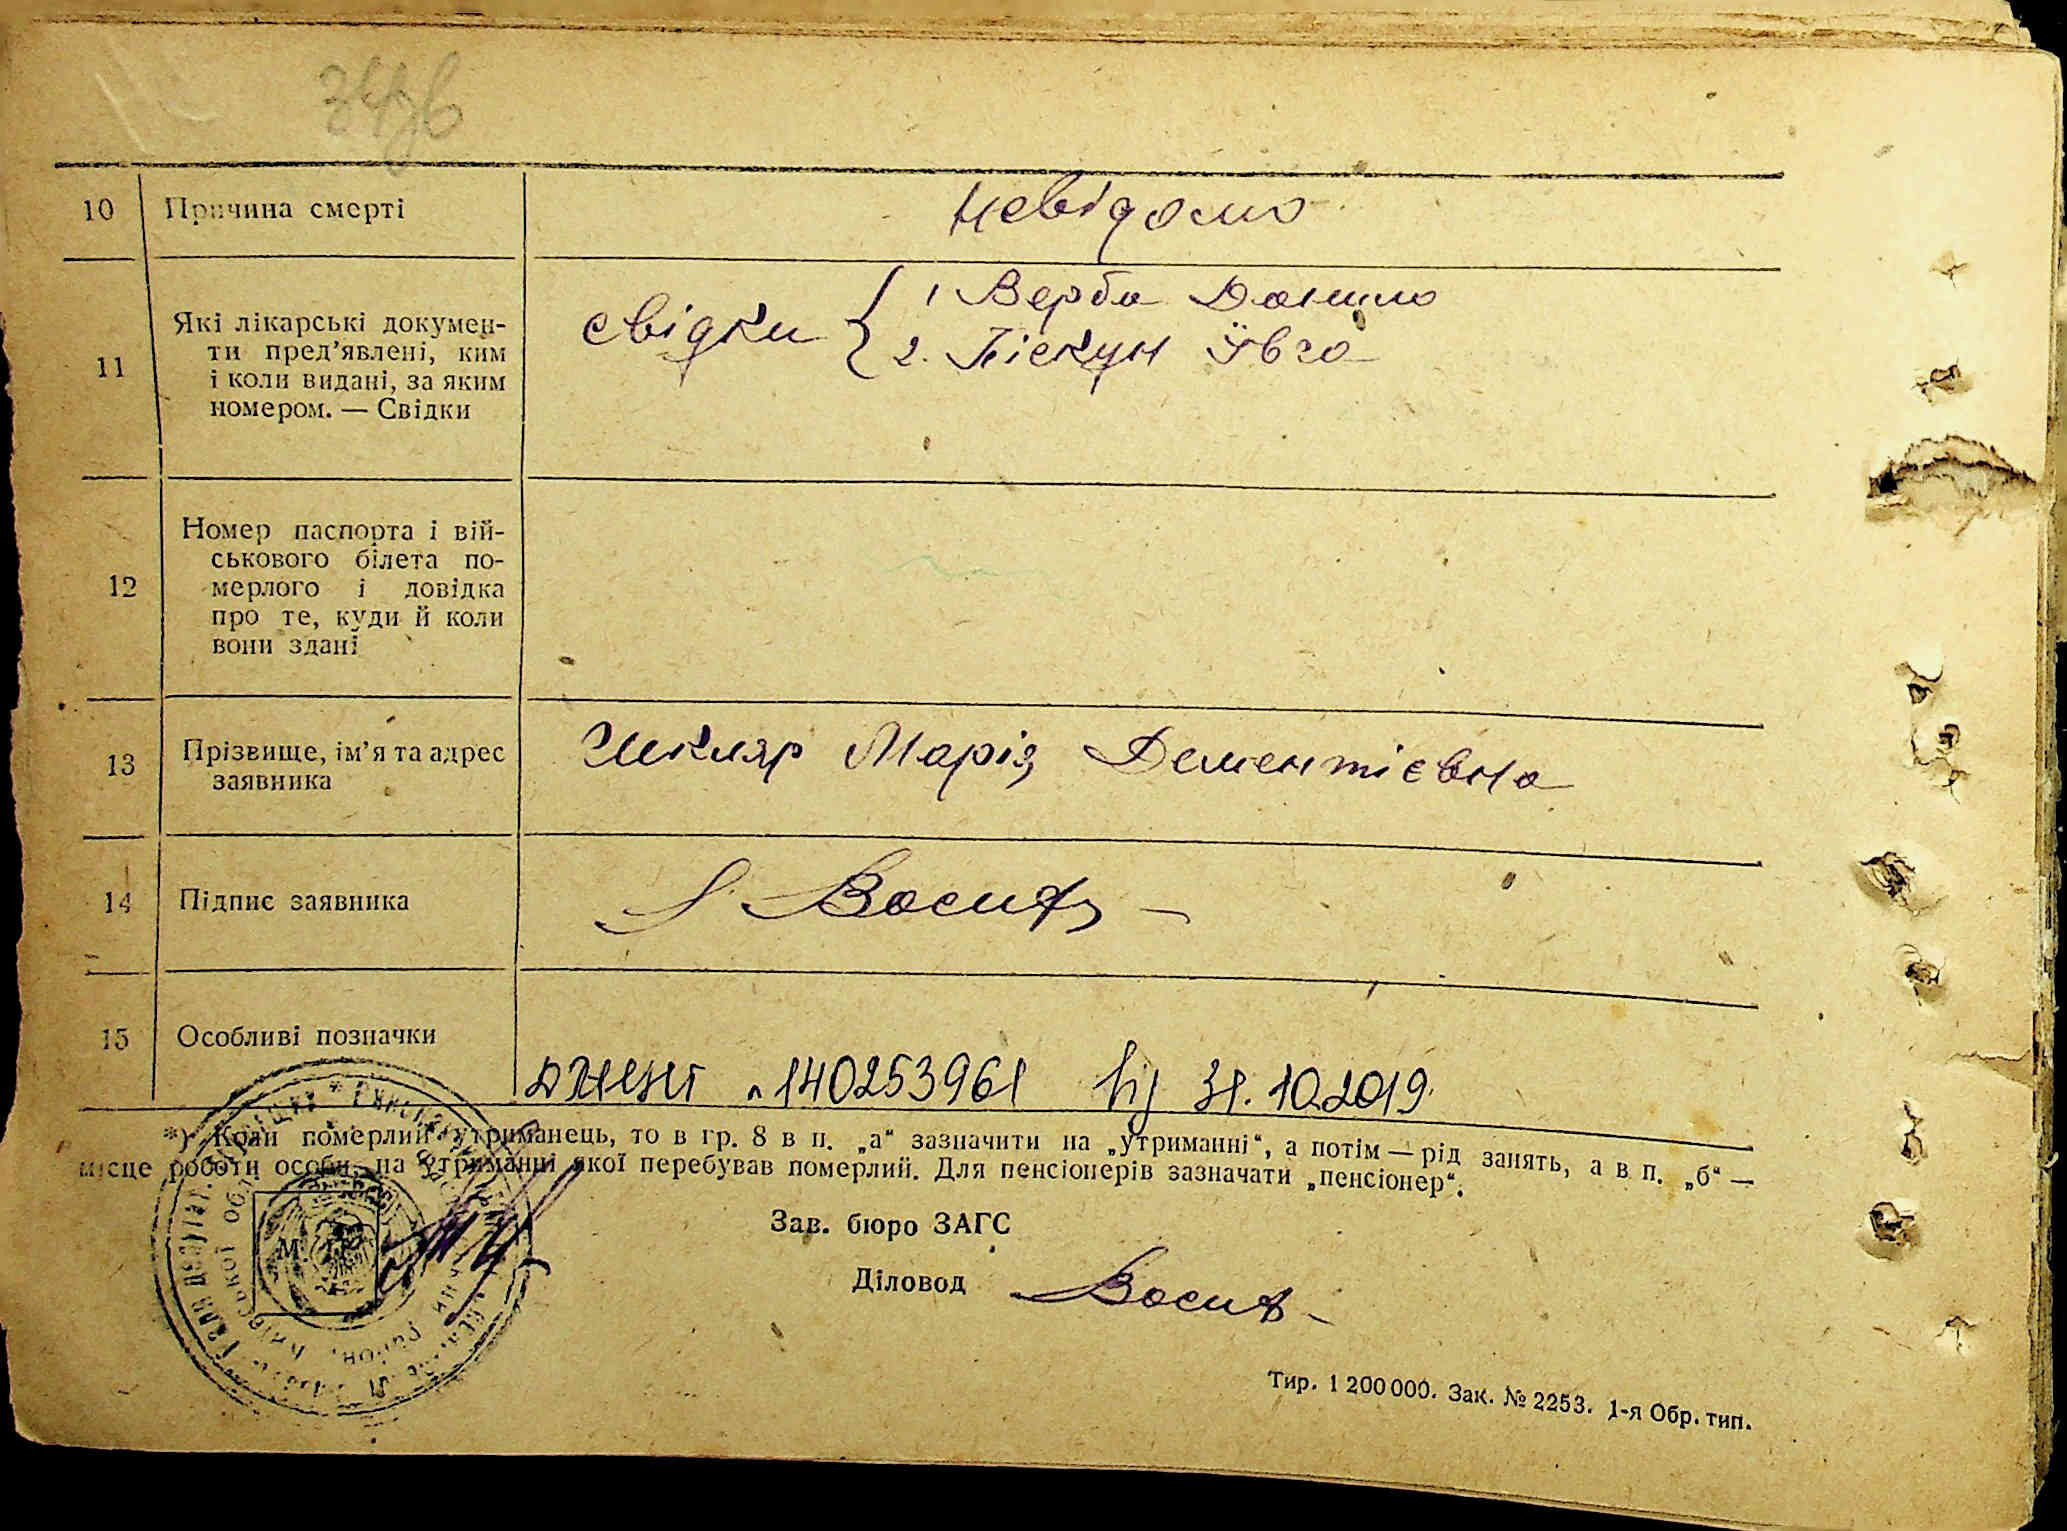 10 Причина смерті невідомо
11 Які лікарські докумен-
ти пред’явлені, ким
і коли видані, за яким
номером. — Свідки
свідки { 1 Верба Данило
2. Піскун Ївга
12 Номер паспорта і вій-
ськового білета по-
мерлого і довідка
про те, куди й коли
вони здані
13 Прізвище, ім’я та адрес
заявника
Шкляр Марія Дементієвна
14 Підпис заявника
15 Особливі позначки
140253961 від 31.10.2019
*) Коли померлий утриманець, то в гр. 8 в п. „а“ зазначити на „утриманні“, а потім — рід занять, а в п. „б“ —
місце роботи особи, на утриманні якої перебував померлий. Для пенсіонерів зазначати „пенсіонер“.
Зав. бюро ЗАГС
Діловод
Тир. 1 200 000. Зак. № 2253. 1-я Обр. тип.